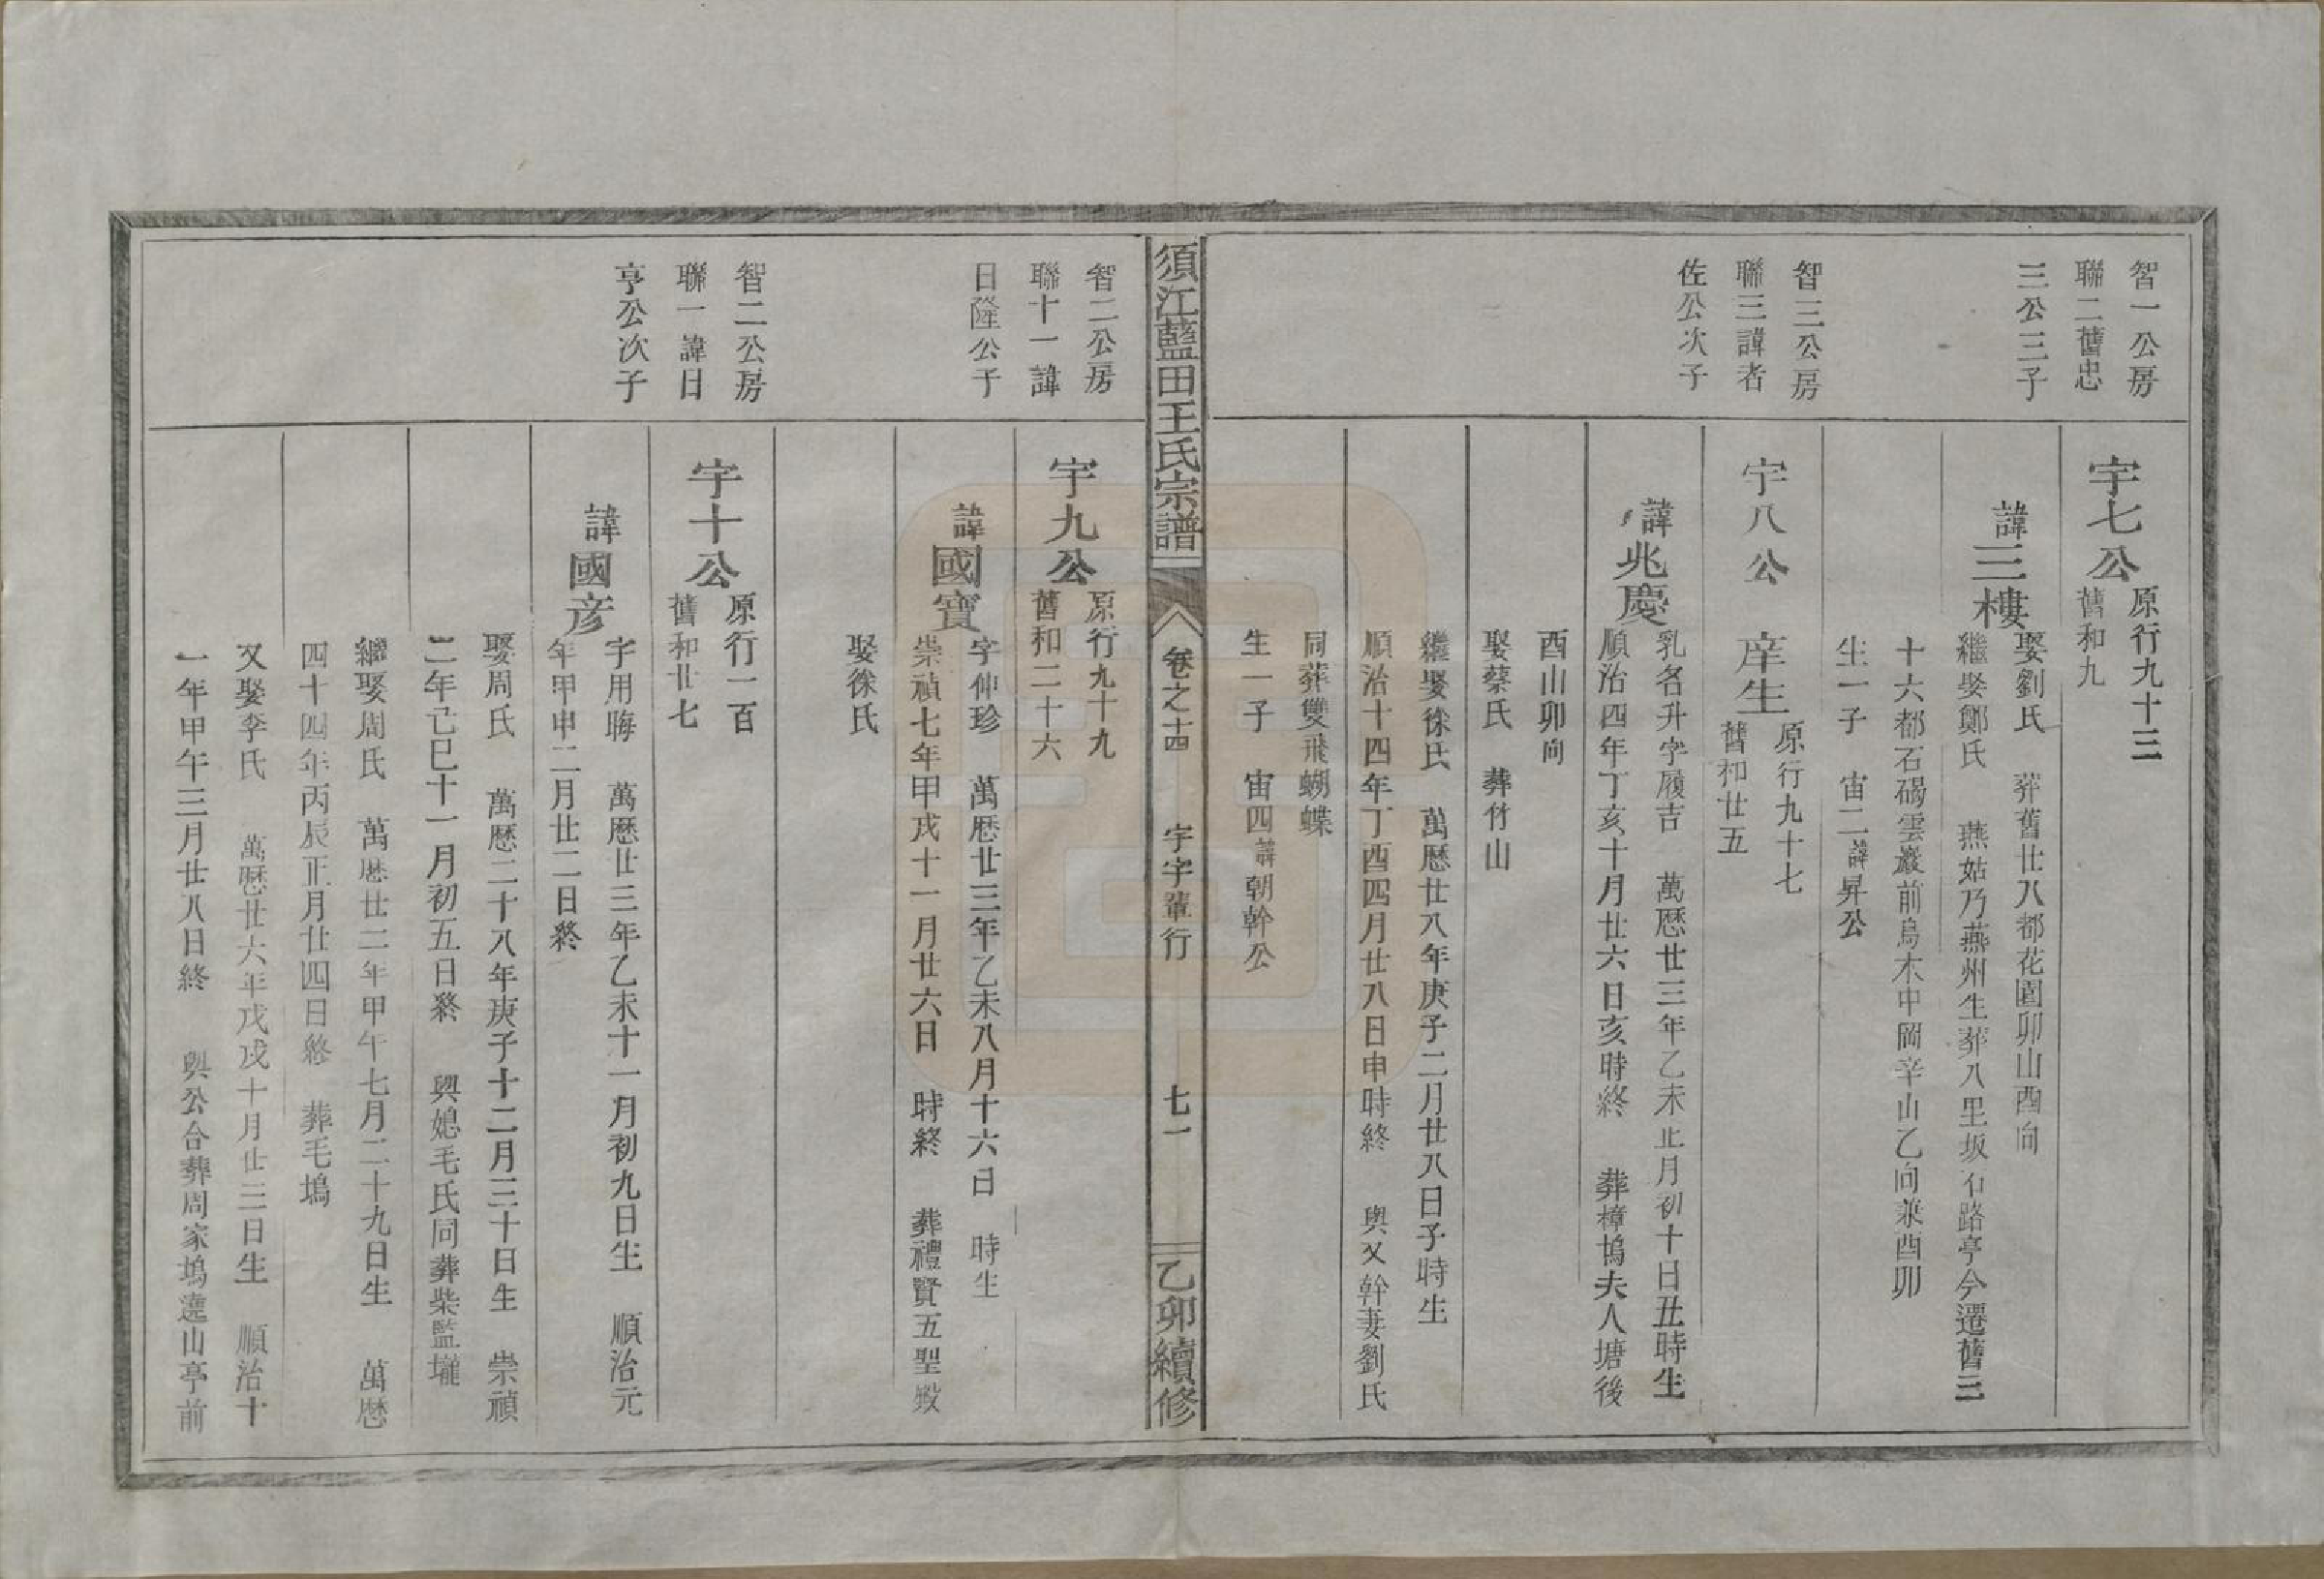 智一公房
聯二舊忠
三公三子
宇七公
原行九十三
舊和九
諱三樓
娶劉氏 葬舊廿八都花園卯山酉向
繼娶鄭氏 燕姑乃燕州生葬八里坂石路亭今遷舊三
十六都石碣雲巖前烏木中岡辛山乙向兼酉卯
生一子 宙二諱昇公
智三公房
聯三諱者
佐公次子
宇八公 庠生
原行九十七
舊和廿五
諱兆慶
乳名升字履吉 萬歷廿三年乙未正月初十日丑時生
順治四年丁亥十月廿六日亥時終 葬樟塢夫人塘後
酉山卯向
娶蔡氏 葬竹山
繼娶徐氏 萬歷廿八年庚子二月廿八日子時生
順治十四年丁酉四月廿八日申時終 與父幹妻劉氏
同葬雙飛蝴蝶
生一子 宙四諱朝幹公
須江藍田王氏宗譜
卷之十四 宇字輩行 七一
乙卯續修
智二公房
聯十一諱
日隆公子
宇九公
原行九十九
舊和二十六
諱國寶
字仲珍 萬歷廿三年乙未八月十六日 時生
崇禎七年甲戌十一月廿六日 時終 葬禮賢五聖殿
娶徐氏
智二公房
聯一諱日
亨公次子
宇十公
原行一百
舊和廿七
諱國彦
字用晦 萬歷廿三年乙未十一月初九日生 順治元
年甲申二月廿二日終
娶周氏 萬歷二十八年庚子十二月三十日生 崇禎
二年己巳十一月初五日終 與媳毛氏同葬柴監壠
繼娶周氏 萬歷廿二年甲午七月二十九日生 萬歷
四十四年丙辰正月廿四日終 葬毛塢
又娶李氏 萬歷廿六年戊戌十月廿三日生 順治十
一年甲午三月廿八日終 與公合葬周家塢遶山亭前